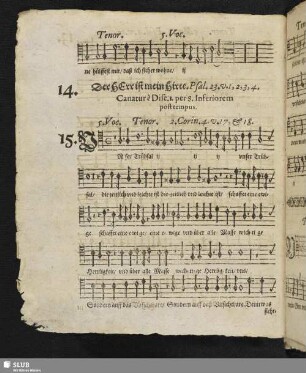 Tenor. 5. Voc.
ne hülffest mir, daß ich sicher wohne, ij
14. Der HErr ist mein Hirte. Psal. 23. v. 1. 2. 3. 4.
Canatur è Disc. 1. per 8. Inferiorem
post tempus.
5. Voc. Tenor. 2. Corin. 4. v. 17. & 18.
15.
Unser Trübsal ij ij unser Trüb-
sal, die zeitlich und leichte ist die zeitlich und leichte ist schaffet eine ewi-
ge schaffet eine ewige, eine ewige und über alle Masse wichtige
Herrligkeit, und über alle Masse wichtige Herrligkeit, uns,
Sondern auff das Unsichtbare Sondern auff das Unsichtbare, Denn was
sicht-
SLUB